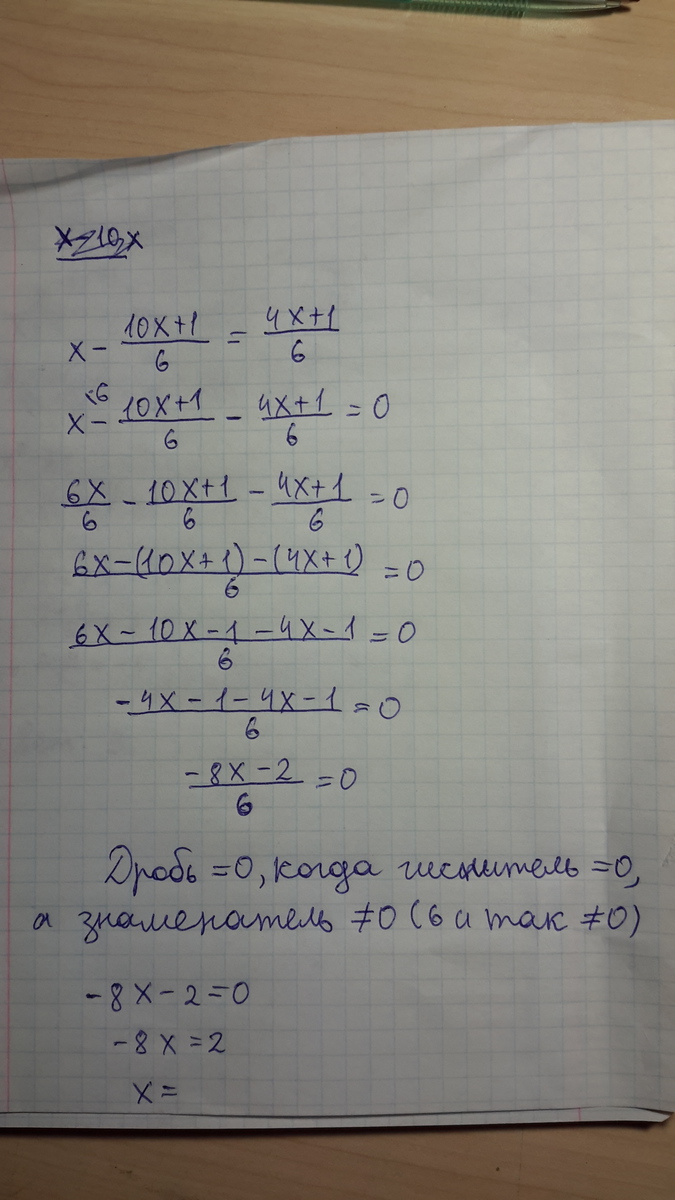 x - \frac{10x+1}{6} = \frac{4x+1}{6}
x^{\cdot 6} - \frac{10x+1}{6} - \frac{4x+1}{6} = 0
\frac{6x}{6} - \frac{10x+1}{6} - \frac{4x+1}{6} = 0
\frac{6x-(10x+1)-(4x+1)}{6} = 0
\frac{6x-10x-1-4x-1}{6} = 0
\frac{-4x-1-4x-1}{6} = 0
\frac{-8x-2}{6} = 0
Дробь =0, когда числитель =0,
а знаменатель ≠0 (6 и так ≠0)
-8x-2=0
-8x=2
x=